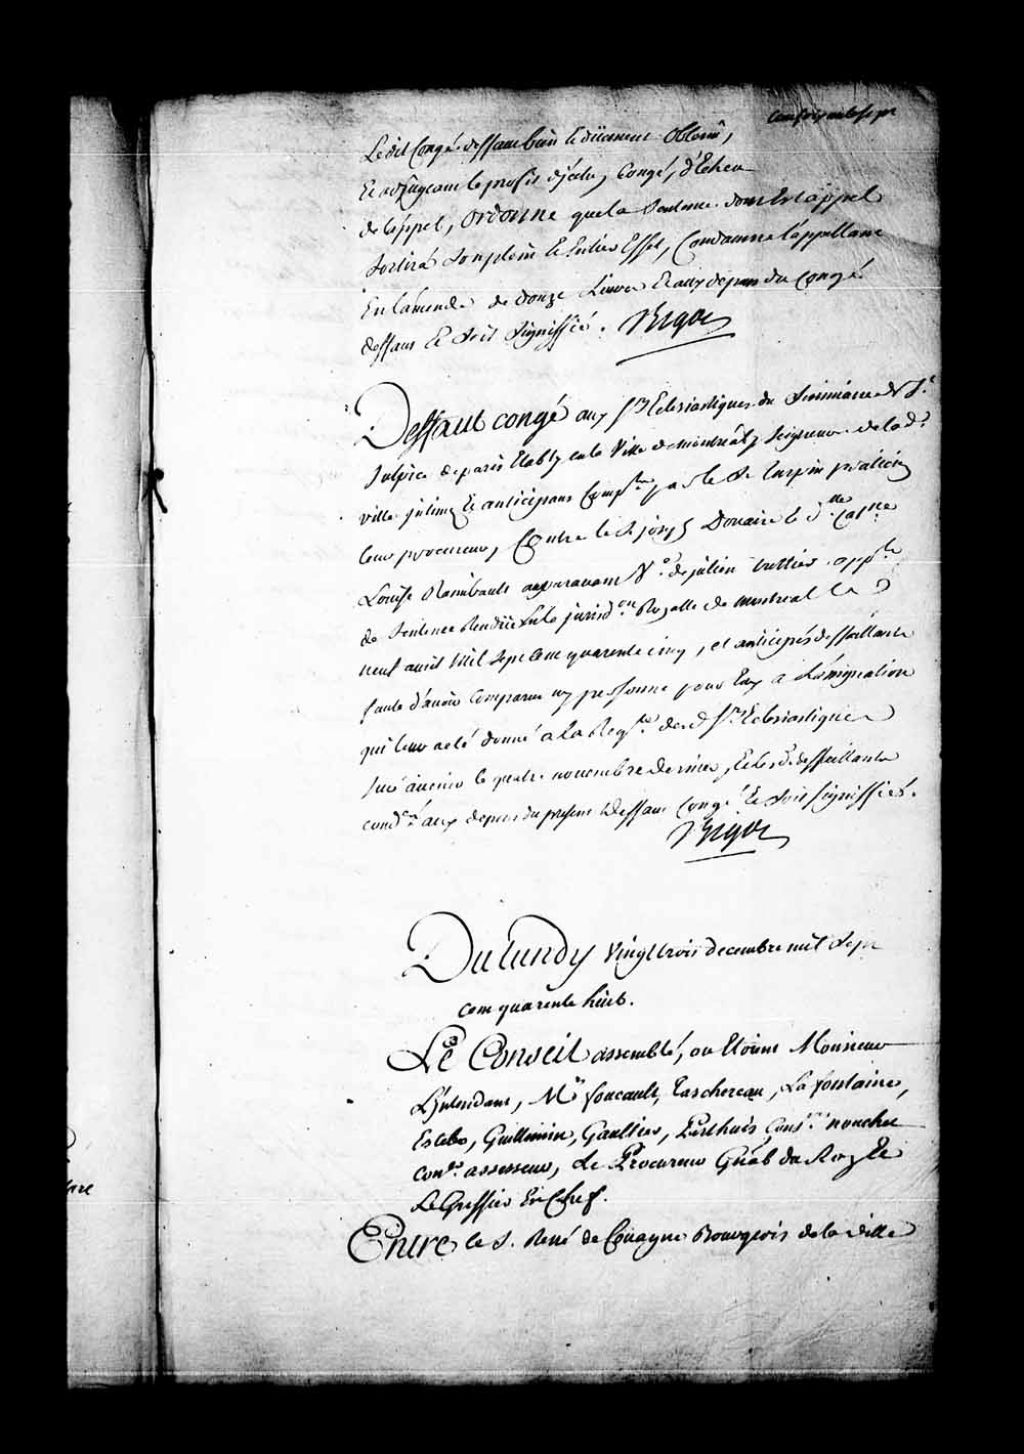 Ledit Congé deffaut bien et düement Obtenu,
Et adjugeant le profit d'jcelui, Congé, d'Echeu
de l'appel, Ordonne que la Sentence dont Est appel
Sortira Son plein Et Entier Effet, Condamne l'appellant
En L'amende de douze Livres Et aux depens du Congé
deffaut Et Soit Signiffié. Bigot
Deffaut congé aux Srs Eclesiastiques du Seminaire de St.
Sulpice de paris Etably en la Ville de Montréal, Seigneurs de lad.
ville jntimez Et anticipans Comp. par le Sr. Turpin praticien
leur procureur, Contre le S. joseph Douaire et d.lle Cat.ne
Louise Raimbault auparavant V.e de julien Trottier app.te
de Sentence Rendüe En la jurid.on Royalle de Montreal Le
neuf avril Mil Sept Cent quarente cinq, et anticipés deffaillants
faute d'avoir Comparu ny personne pour Eux a L'assignation
qui leur a eté donné a La Req.te desd. Srs Eclesiastiques
le quatre novembre dernier, Et lesd. deffaillants
cond.és aux depens du present Deffaut Congé Et Soit Signiffiés.
Bigot
Du Lundy Vingt trois decembre mil Sept
cent quarente huit.
Le Conseil assemblé, ou Etoient Monsieur
L'Intendant, Mrs foucault, Taschereau, La fontaine,
Estebe, Guillimin, Gaultier, Perthuis Cons.rs nouchet
con.er assesseur, Le Procureur Gnéral du Roy Et
Le Greffier En Chef.
Entre le S. René de Couagne Bourgeois de la ville